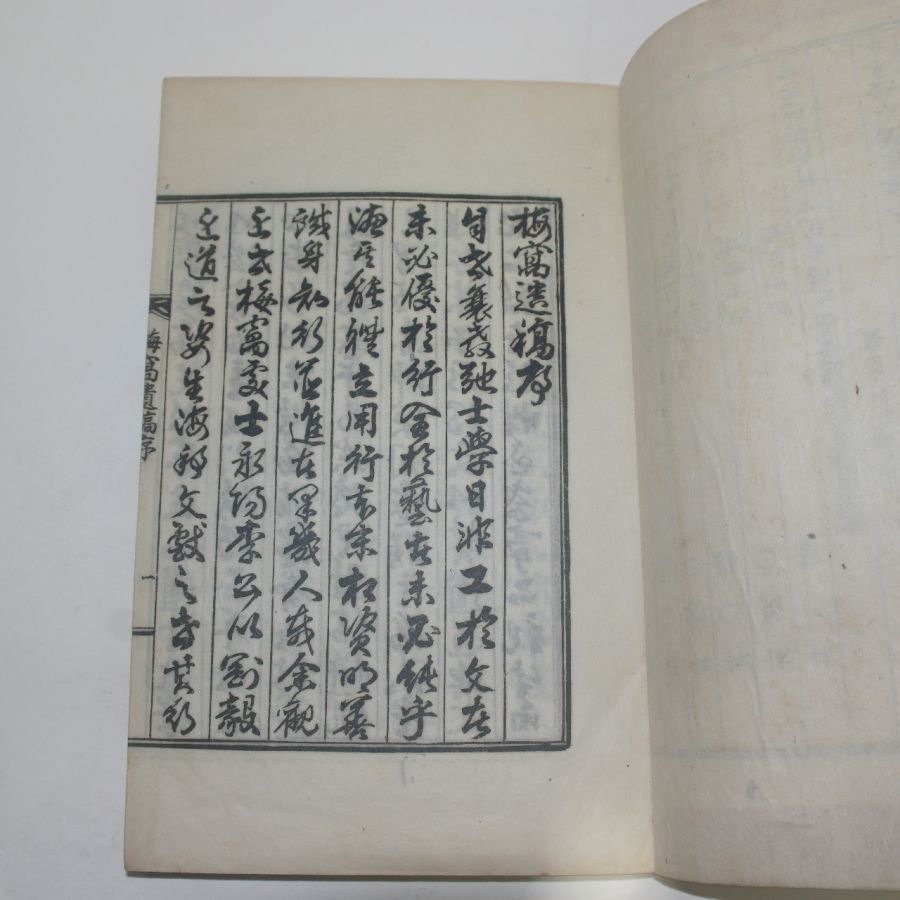 梅窩遺稿序
自世衰敎弛士學日工於文者
未必優於行全於藝者未必純乎
德其能體立用行本末相資明善
誠身知行並進者果幾人哉余觀
近世梅窩處士永陽李公以剛毅
近道之姿生海文獻之世其行
梅窩遺稿序
一